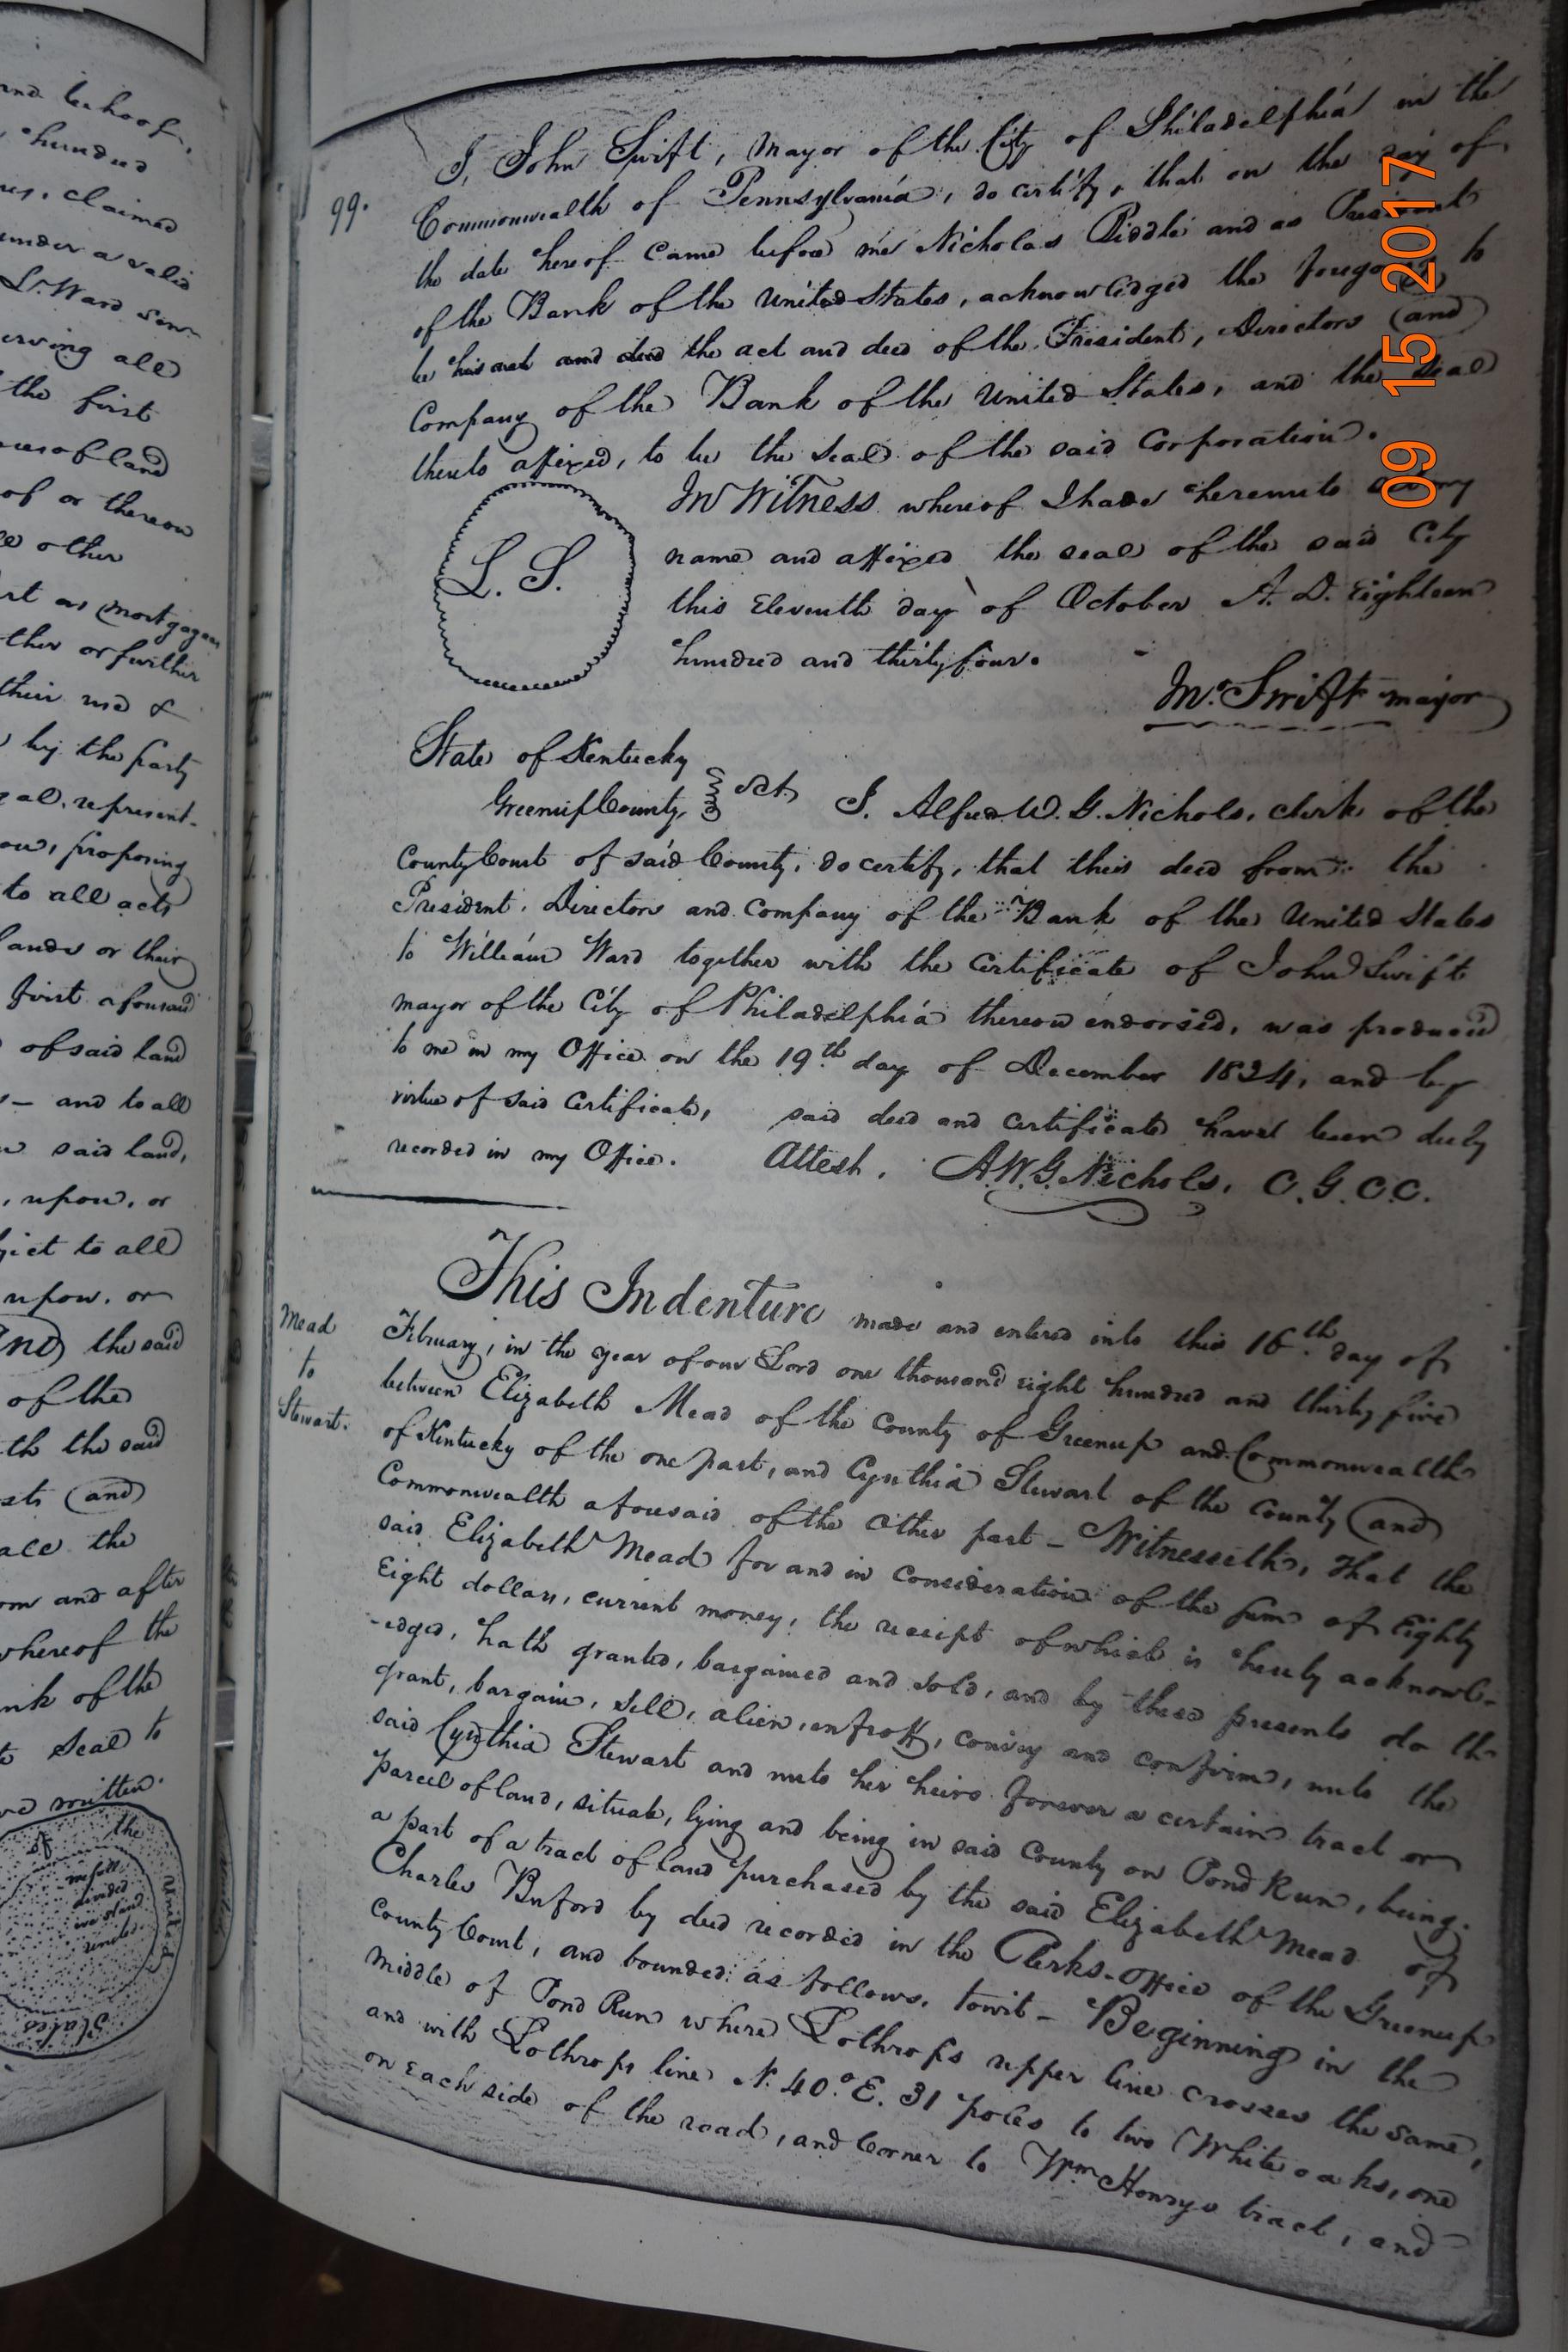 and behoof,
hundred
claimed
under a valid
Ward
all
the first
of land
of or thereon
other
as mortgagee
or further
their use &
by the party
represent-
proposing
to all acts
lands or their
first aforesaid
of said land
and to all
said land,
, upon, or
to all
upon, or
and the said
of the
the said
(and)
the
and after
whereof the
of the
Seal to
written
of the United States
99.
I, John Swift, Mayor of the City of Philadelphia in the
Commonwealth of Pennsylvania, do certify, that on the day of
the date hereof came before me Nicholas Biddle and as President
of the Bank of the United States, acknowledged the foregoing to
be his act and deed the act and deed of the President, Directors (and)
Company of the Bank of the United States, and the seal
thereto affixed, to be the seal of the said Corporation.
L. S.
In Witness whereof I have hereunto my
name and affixed the seal of the said City
this Eleventh day of October A. D. Eighteen
hundred and thirty four.
Jno. Swift mayor
State of Kentucky
Greenup County, Sct. I, Alfred W. G. Nichols, clerk of the
County Court of said County, do certify, that this deed from the
President, Directors and Company of the Bank of the United States
to William Ward together with the certificate of John Swift
mayor of the City of Philadelphia thereon endorsed, was produced
to me in my Office on the 19th day of December 1834, and by
virtue of said certificate, said deed and certificate have been duly
recorded in my Office. Attest, A. W. G. Nichols, C. G. C. C.
Mead
to
Stewart.
This Indenture made and entered into this 16th day of
February, in the year of our Lord one thousand eight hundred and thirty five
between Elizabeth Mead of the County of Greenup and Commonwealth
of Kentucky of the one part, and Cynthia Stewart of the County (and)
Commonwealth aforesaid of the other part - Witnesseth, that the
said Elizabeth Mead for and in consideration of the sum of Eighty
Eight dollars, current money, the receipt of which is hereby acknowl-
-edged, hath granted, bargained and sold, and by these presents do th
grant, bargain, sell, alien, enfeoff, convey and confirm, unto the
said Cynthia Stewart and unto her heirs forever a certain tract or
parcel of land, situate, lying and being in said County on Pond Run, being
a part of a tract of land purchased by the said Elizabeth Mead of
Charles Buford by deed recorded in the Clerks-Office of the Greenup
County Court, and bounded as follows, towit - Beginning in the
middle of Pond Run where Lothrops upper line crosses the same,
and with Lothrops line N. 40.° E. 31 poles to two White oaks, one
on each side of the road, and Corner to Wm Henrys tract, and
09 15 2017